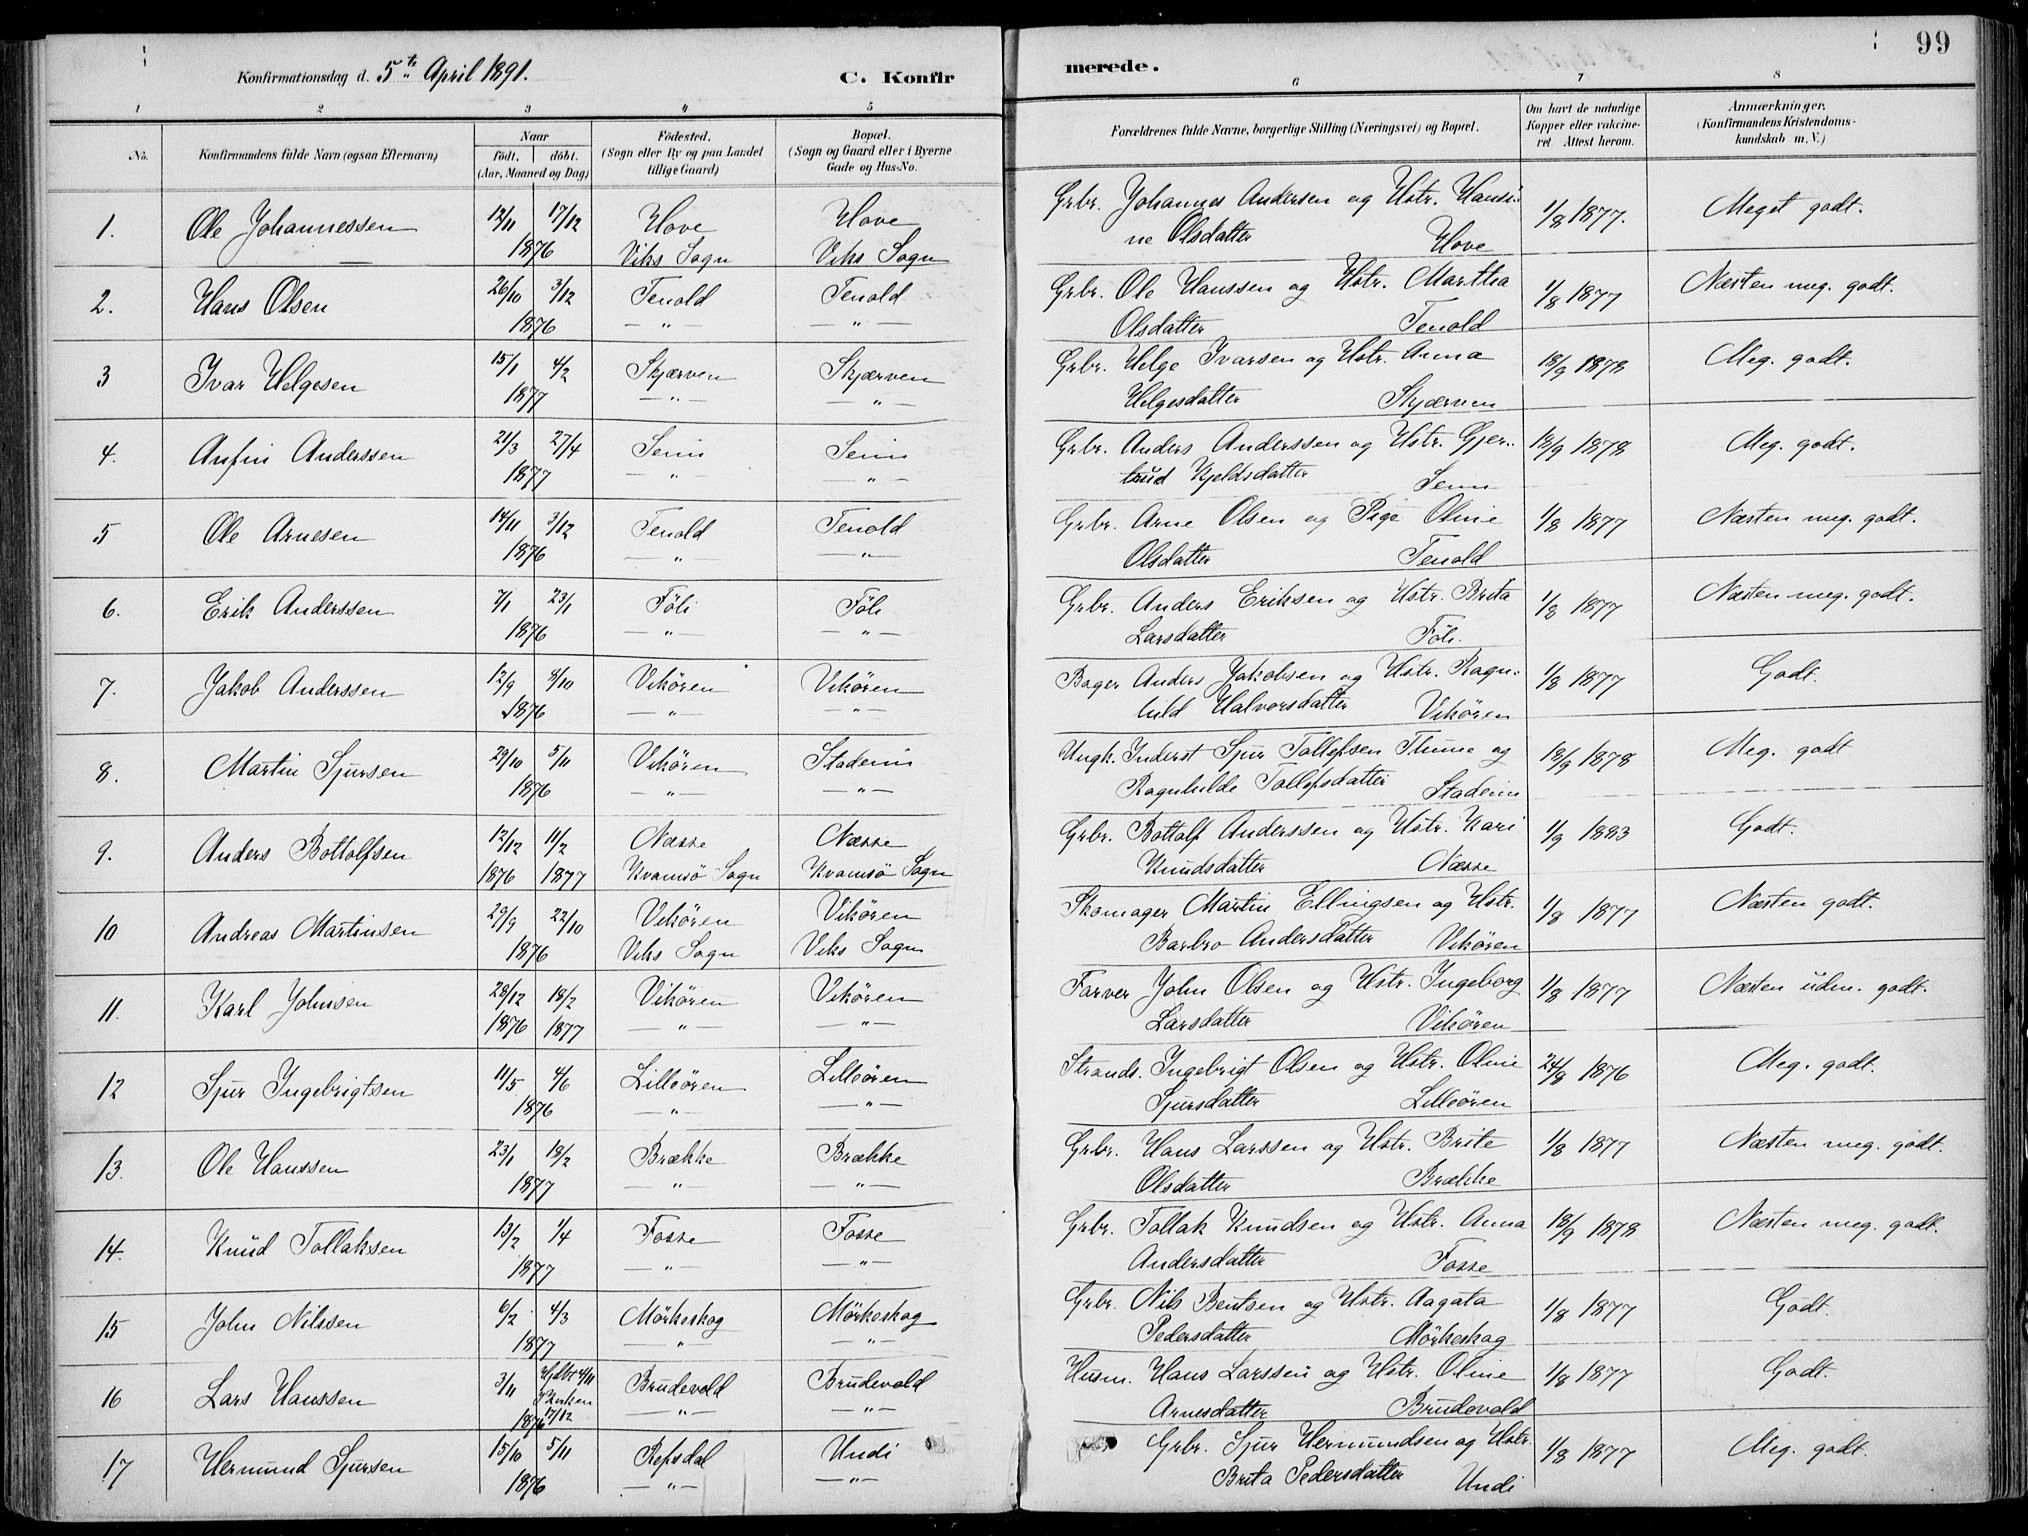 Konfirmationsdag d. 5te April 1891.
C. Konfirmerede.
99
1 2 3 4 5 6 7 8
No.
Konfirmandens fulde Navn (ogsaa Efternavn)
Naar
födt. döbt.
(Aar, Maaned og Dag)
Födested.
(Sogn eller By og paa Landet
tillige Gaard)
Bopæl.
(Sogn og Gaard eller i Byerne
Gade og Hus-No.
Forældrenes fulde Navne, borgerlige Stilling (Næringsvei) og Bopæl.
Om havt de naturlige
Kopper eller vakcine-
ret Attest herom.
Anmærkninger.
(Konfirmandens Kristendoms-
kundskab m. V.)
1. Ole Johannessen 12/11 17/12 Hove Hove Grbr. Johannes Andersen og Hstr. Hansi- 1/8 1877. Meget godt.
1876 Viks Sogn Viks Sogn ne Olsdatter Hove
2. Hans Olsen 26/10 3/12 Tenold Tenold Grbr. Ole Hanssen og Hstr. Martha 1/8 1877 Næsten meg. godt.
1876 — " — — " — Olsdatter Tenold
3 Ivar Helgesen 15/1 4/2 Skjærven Skjærven Grbr. Helge Ivarsen og Hstr. Anna 18/9 1878 Meg. godt.
1877 — " — — " — Helgesdatter Skjærven
4. Anfin Anderssen 21/3 27/4 Seim Seim Grbr. Anders Anderssen og Hstr. Gjer- 18/9 1878 Meg. godt.
1877 — " — — " — trud Kjeldsdatter Seim
5 Ole Arnesen 14/11 3/12 Tenold Tenold Grbr. Arne Olsen og Pige Oline 1/8 1877 Næsten meg. godt.
1876 — " — — " — Olsdatter Tenold
6. Erik Anderssen 7/1 23/1 Föli Föli Grbr. Anders Eriksen og Hstr. Brita 1/8 1877 Næsten meg. godt.
1876 — " — — " — Larsdatter Föli.
7. Jakob Anderssen 12/9 8/10 Vikören Vikören Bager Anders Jakobsen og Hstr. Ragn- 1/8 1877 Godt.
1876 — " — — " — hild Halvorsdatter Vikören
8. Martin Sjursen 29/10 5/11 Vikören Stadeim Ungk. Inderst Sjur Tollefsen Thune og 18/9 1878 Meg. godt
1876 — " — — " — Ragnhilde Tollefsdatter Stadeim
9. Anders Bottolfsen 12/12 11/2 Næsse Næsse Grbr. Bottolf Anderssen og Hstr. Kari 1/9 1883 Godt.
1876 1877 Kvamsö Sogn Kvamsö Sogn Knudsdatter Næsse
10 Andreas Martinsen 29/9 22/10 Vikören Vikören Skomager Martin Ellingsen og Hstr. 1/8 1877 Næsten godt.
1876 Viks Sogn Viks Sogn Barbro Andersdatter Vikören
11. Karl Johnsen 28/12 18/2 Vikören Vikören Farver John Olsen og Hstr. Ingeborg 1/8 1877 Næsten udm. godt.
1876 1877 — " — — " — Larsdatter Vikören
12 Sjur Ingebrigtsen 11/5 4/6 Lilleören Lilleören Strands. Ingebrigt Olsen og Hstr. Oline 24/9 1876 Meg. godt.
1876 — " — — " — Sjursdatter Lilleören
13. Ole Hanssen 23/1 18/2 Brække Brække Grbr. Hans Larssen og Hstr. Brite 1/8 1877 Næsten meg. godt.
1877 — " — — " — Olsdatter Brække
14. Knud Tollaksen 13/2 1/4 Fosse Fosse Grbr. Tollak Knudsen og Hstr. Anna 18/9 1878 Næsten meg. godt.
1877 — " — — " — Andersdatter Fosse
15 John Nilssen 6/2 4/3 Mörkeskog Mörkeskog Grbr. Nils Bentsen og Hstr. Aagata 1/8 1877 Godt.
1877 — " — — " — Pedersdatter Mörkeskog
16 Lars Hanssen 3/11 Hjdbt 4/11 Brudevold Brudevold Husm. Hans Larssen og Hstr. Oline 1/8 1877 Godt.
i Kirken
1876 17/12 — " — — " — Arnesdatter Brudevold
17 Hermund Sjursen 15/10 5/11 Refsdal Undi Grbr. Sjur Hermundsen og Hstr. 1/8 1877 Meg. godt.
1876 — " — — " — Brita Pedersdatter Undi